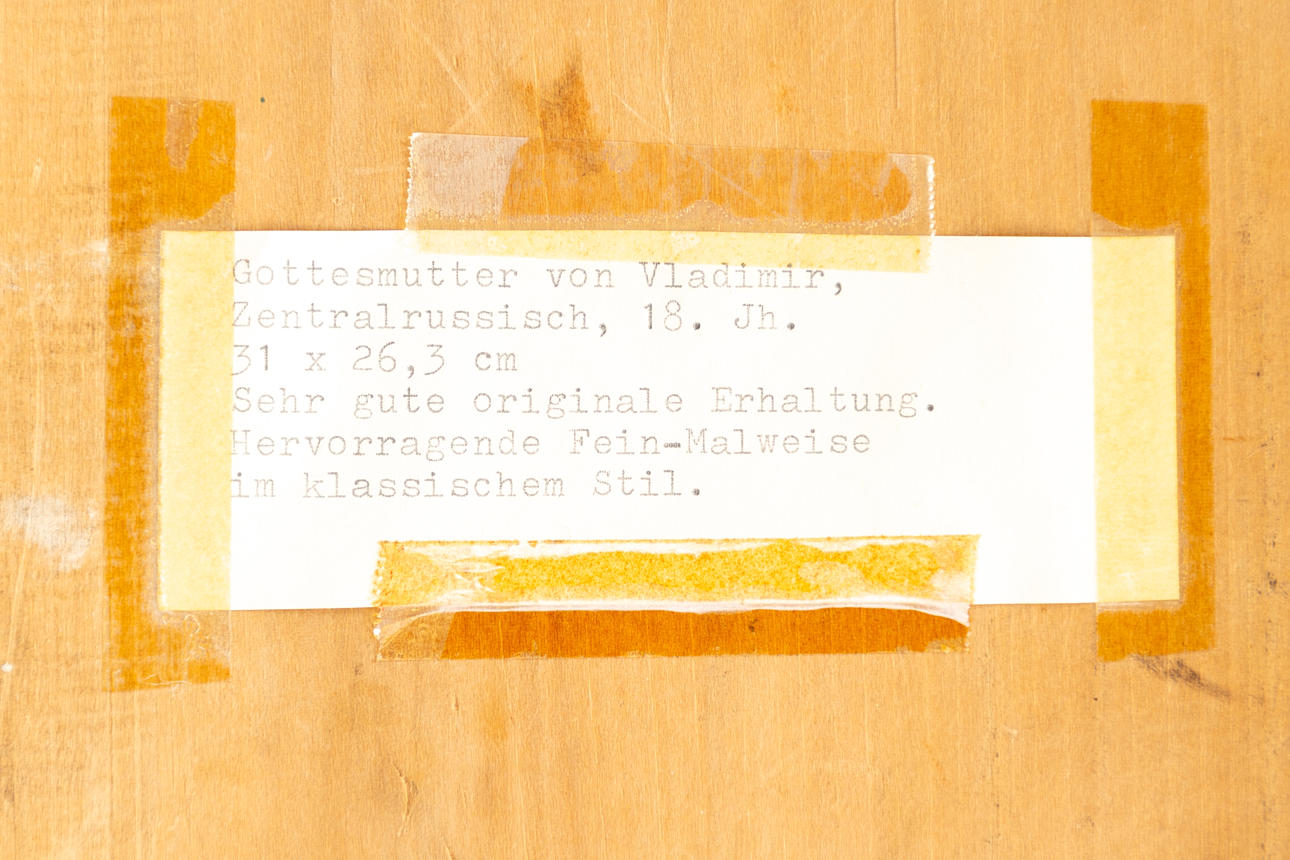 Gottesmutter von Vladimir,
Zentralrussisch, 18. Jh.
31 x 26,3 cm
Sehr gute originale Erhaltung.
Hervorragende Fein-Malweise
im klassischem Stil.